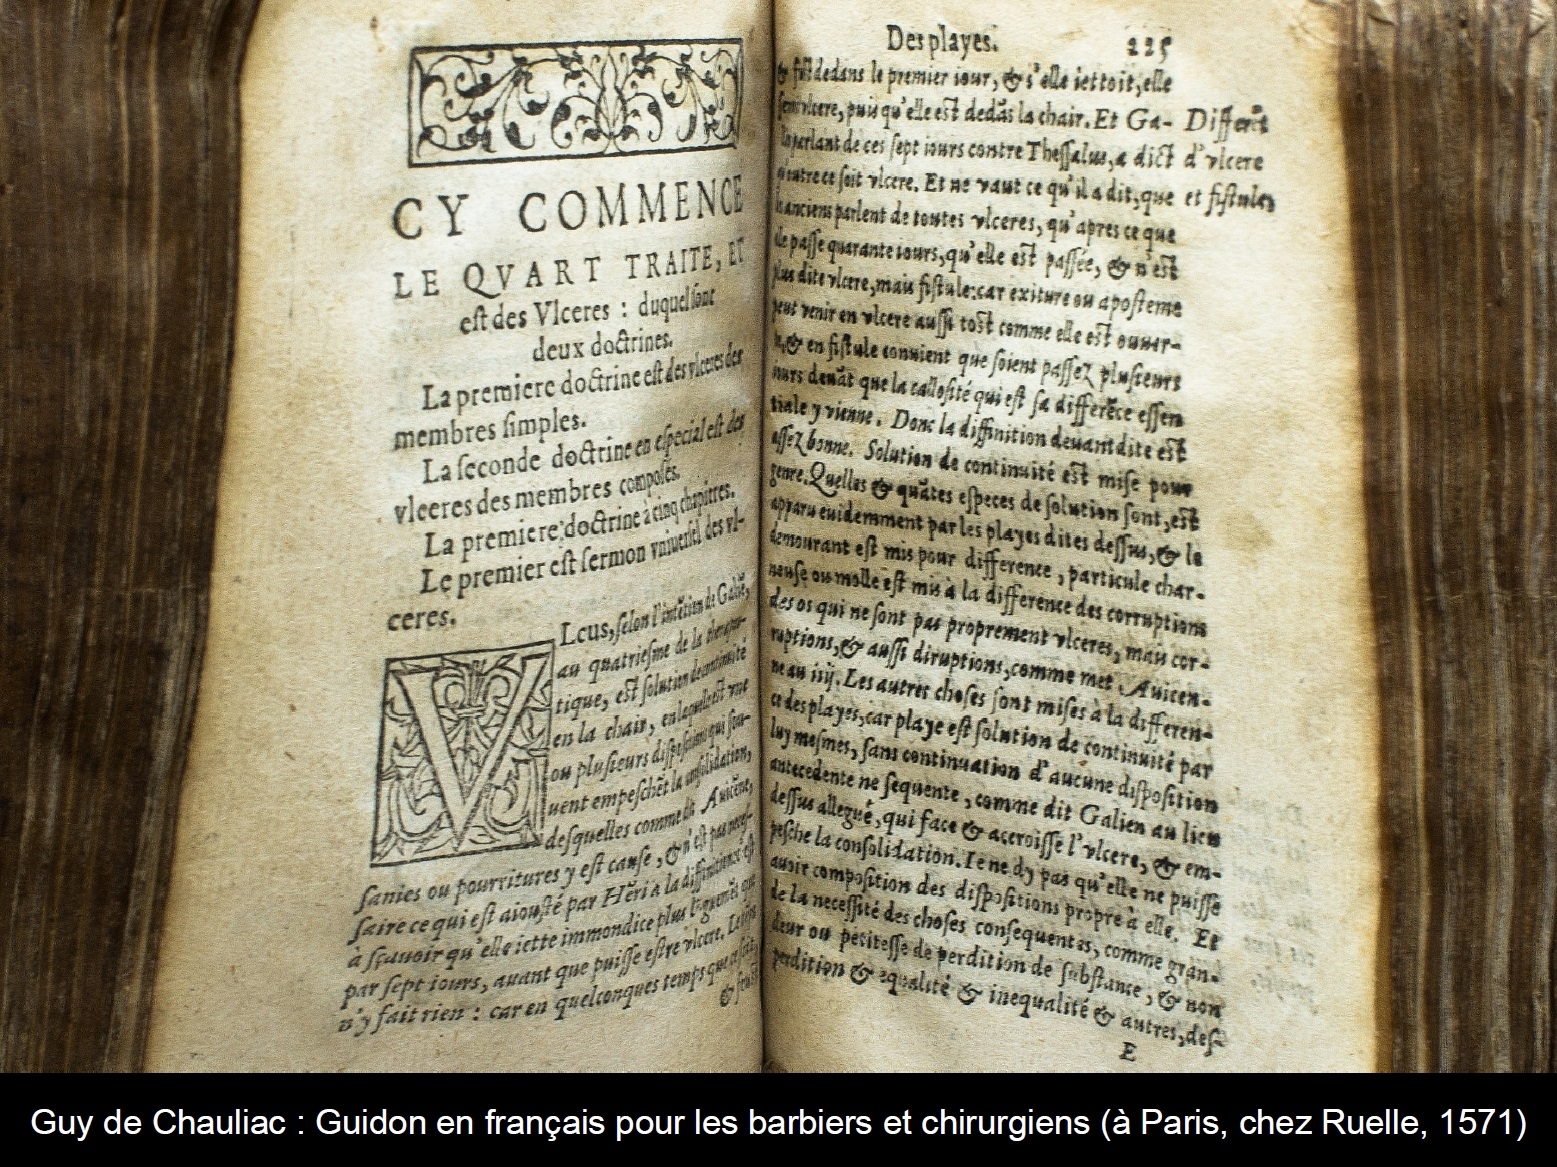 CY COMMENCE
LE QVART TRAITE, ET
eſt des Vlceres : duquel ſont
deux doctrines.
La premiere doctrine eſt des vlceres des
membres ſimples.
La ſeconde doctrine en eſpecial eſt des
vlceres des membres compoſés.
La premiere doctrine à cinq chapitres.
Le premier eſt ſermon vniuerſel des vl-
ceres.
VLcus, ſelon l'intētion de Galiē,
au quatrieſme de la therapeu-
tique, eſt ſolution de continuité
en la chair, en laquelle eſt vne
ou pluſieurs diſpoſitions qui ſou-
uent empeſchēt la conſolidation,
deſquelles comme dit Auicēne,
ſanies ou pourritures y eſt cauſe, & n'eſt pas neceſ-
ſaire ce qui eſt aiouſté par Hēri à la diffinition c'eſt
à ſçauoir qu'elle iette immondice plus lōguemēt que
par ſept iours, auant que puiſſe eſtre vlcere. Le
n'y fait rien : car en quelconques temps que ce ſoit,
&
Des playes. 225
& fuſt dedans le premier iour, & s'elle iettoit, elle
ſera vlcere, puis qu'elle eſt dedās la chair. Et Ga-
parlant de ces ſept iours contre Theſſalus, a dict
ce ſoit vlcere. Et ne vaut ce qu'il a dit, que
Differēt
d'vlcere
et fiſtules
anciens parlent de toutes vlceres, qu'apres ce que
paſſe quarante iours, qu'elle eſt paſſée, & n'eſt
plus dite vlcere, mais fiſtule: car exiture ou apoſteme
peut venir en vlcere auſſi toſt comme elle eſt ouuer-
te, & en fiſtule conuient que ſoient paſſez pluſieurs
iours deuāt que la calloſité qui eſt ſa differēce eſſen
tiale y vienne. Donc la diffinition deuant dite eſt
aſſez bonne. Solution de continuité eſt miſe pour
genre. Quelles & quātes eſpeces de ſolution ſont, eſt
apparu euidemment par les playes dites deſſus, & le
demourant eſt mis pour difference, particule char-
neuſe ou molle eſt mis à la difference des corruptions
des os qui ne ſont pas proprement vlceres, mais cor-
ruptions, & auſſi diruptions, comme met Auicen-
ne au iiij. Les autres choſes ſont miſes à la differen-
ce des playes, car playe eſt ſolution de continuité par
luy meſmes, ſans continuation d'aucune diſpoſition
antecedente ne ſequente, comme dit Galien au lieu
deſſus allegué, qui face & acroiſſe l'vlcere, & em-
peſche la conſolidation. Ie ne dy pas qu'elle ne puiſſe
auoir compoſition des diſpoſitions propre à elle. Et
de la neceſſité des choſes conſequentes, comme gran-
deur ou petiteſſe de perdition de ſubſtance, & non
perdition & equalité & inequalité & autres, deſ-
E
Guy de Chauliac : Guidon en français pour les barbiers et chirurgiens (à Paris, chez Ruelle, 1571)